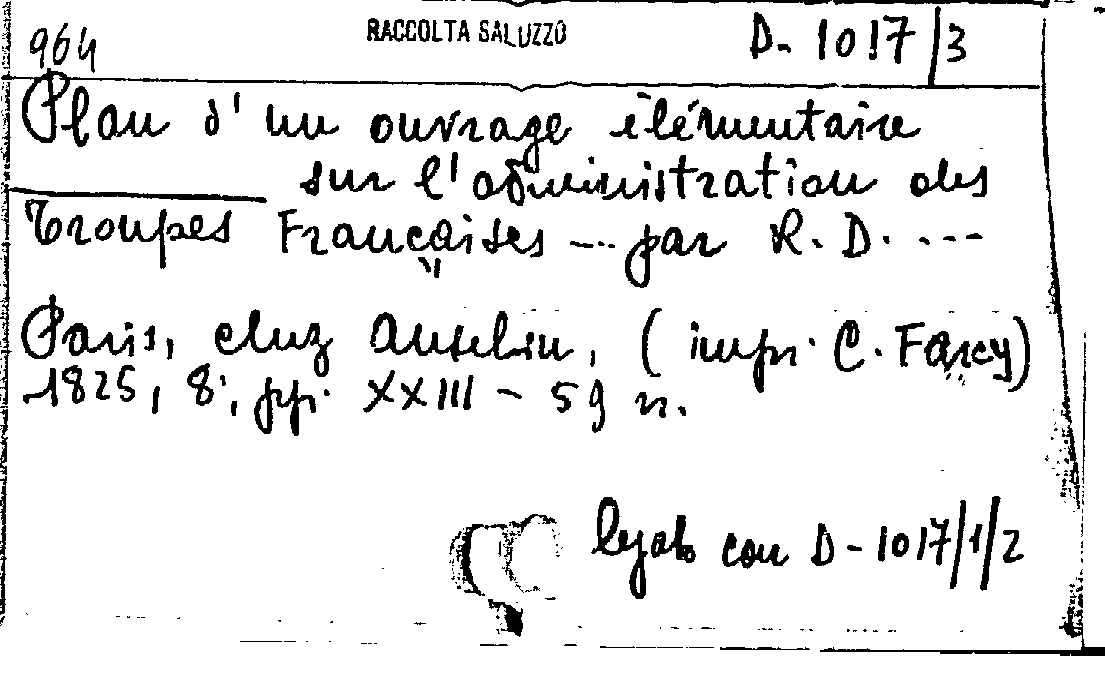 964 RACCOLTA SALUZZO D-1017/3
Plan d'un ouvrage élémentaire
sur l'administration des
Troupes Françaises --- par R. D. ----
Paris, chez Anselin, (impr. C. Farcy)
1825, 8°, pp. XXIII - 59 n.
legato con D-1017/1/2